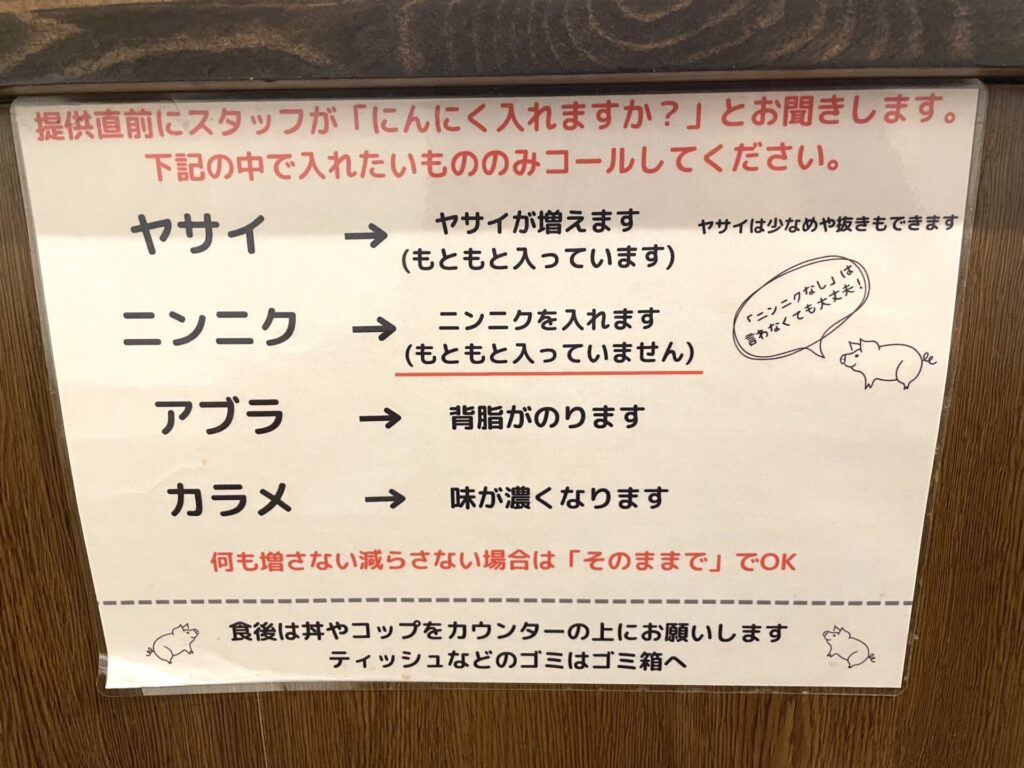 提供直前にスタッフが「にんにく入れますか？」とお聞きします。
下記の中で入れたいもののみコールしてください。
ヤサイ → ヤサイが増えます
(もともと入っています)
ヤサイは少なめや抜きもできます
ニンニク → ニンニクを入れます
(もともと入っていません)
「ニンニクなし」は
言わなくても大丈夫！
アブラ → 背脂がのります
カラメ → 味が濃くなります
何も増さない減らさない場合は「そのままで」でOK
食後は丼やコップをカウンターの上にお願いします
ティッシュなどのゴミはゴミ箱へ